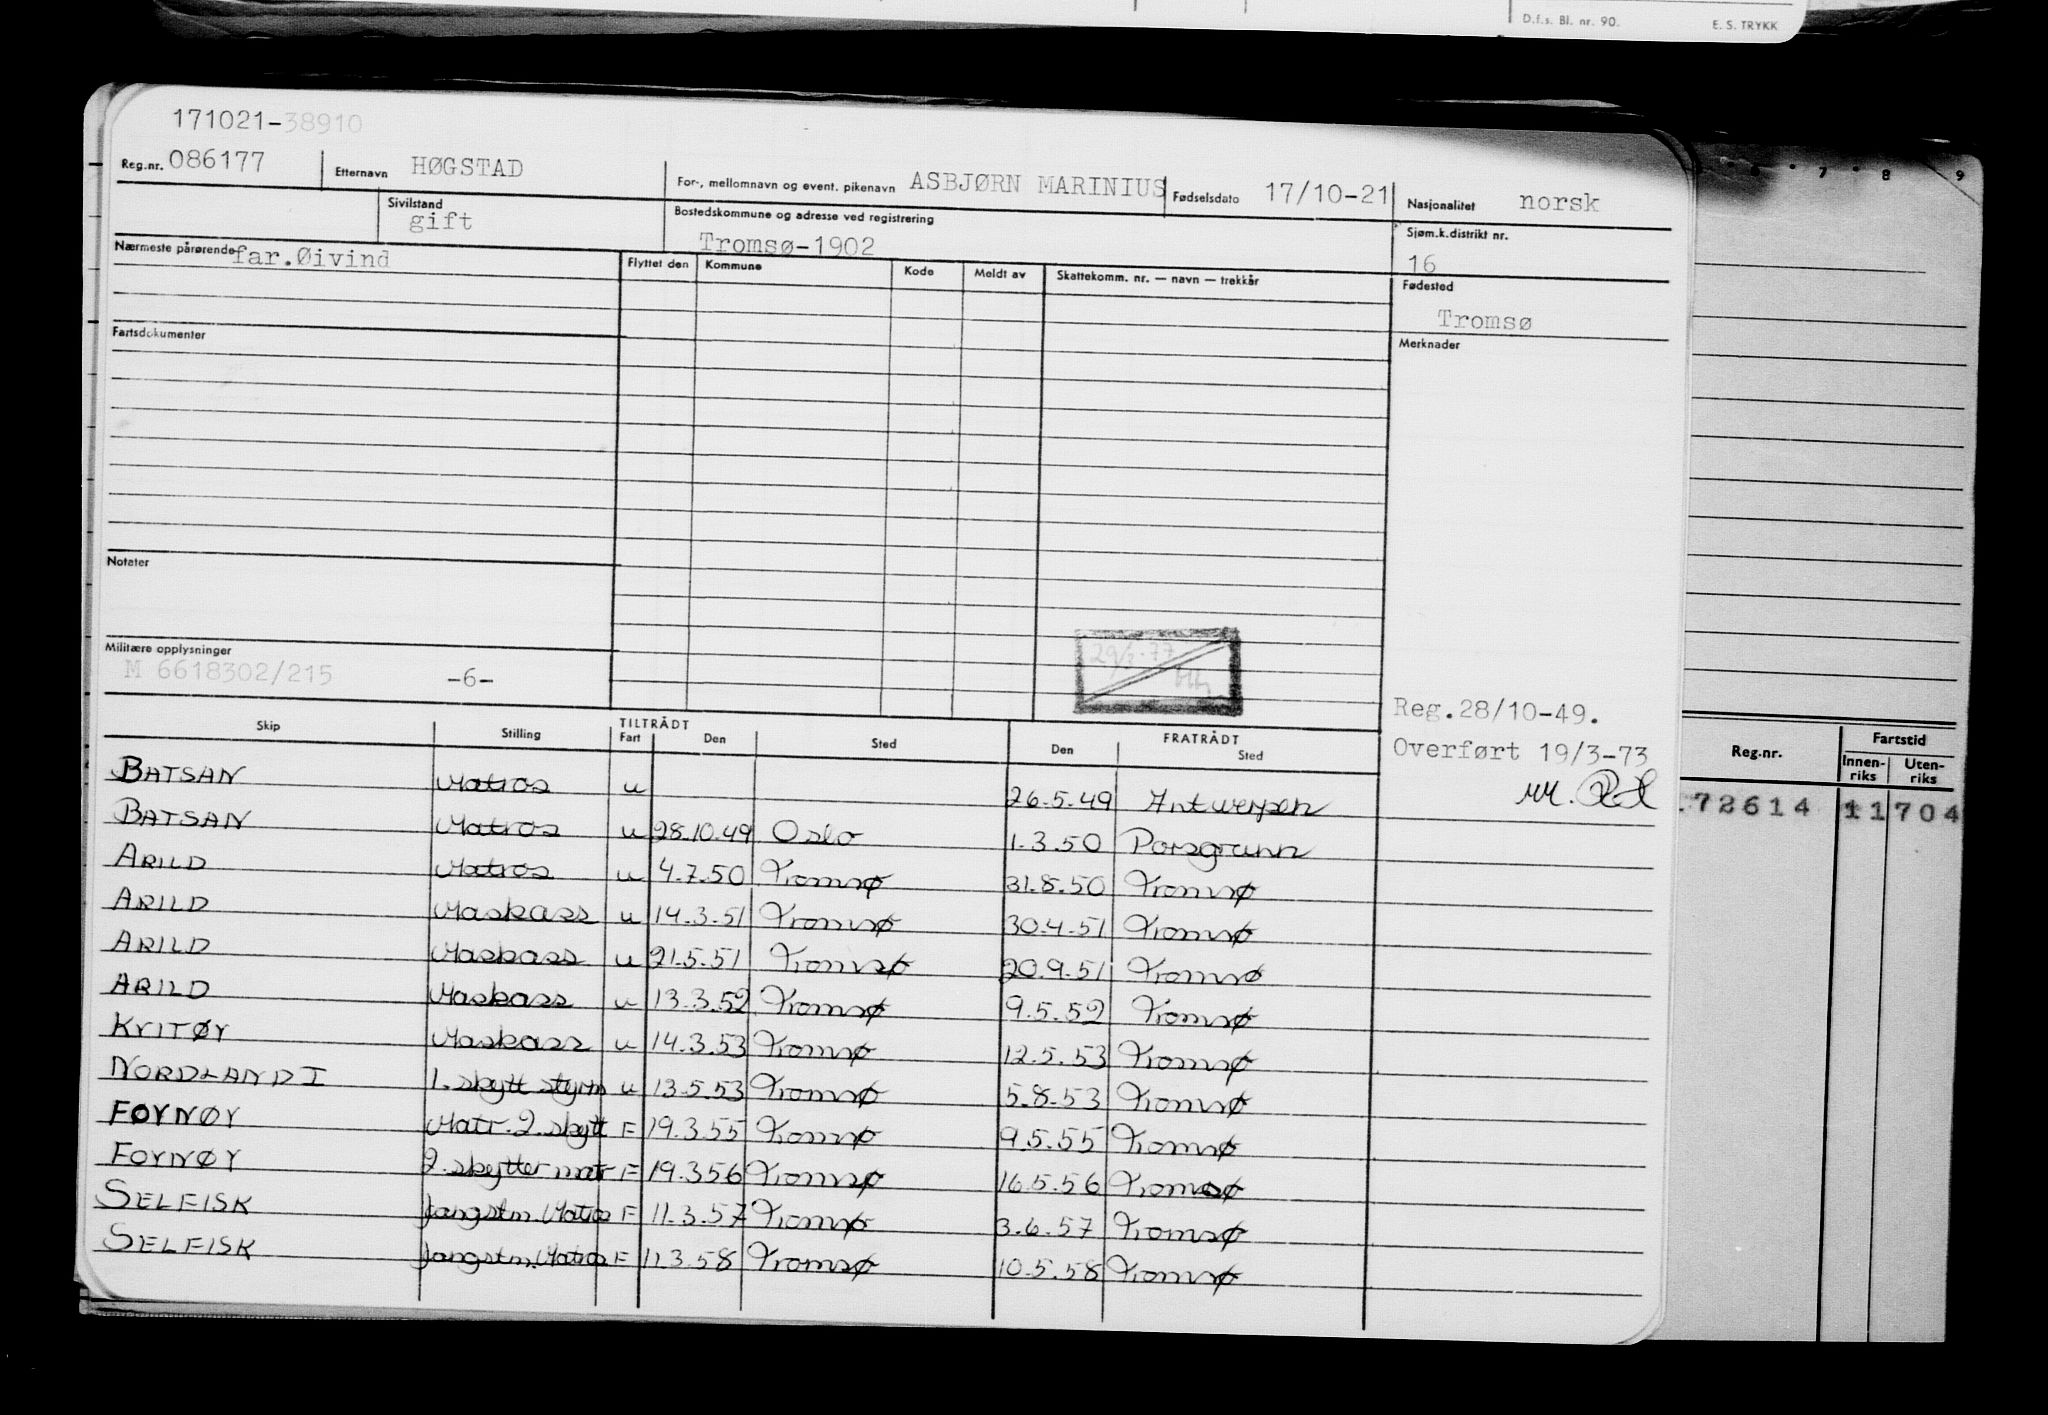 D.f.s. Bl. nr. 90. E. S. TRYKK
171021-38910
Reg.nr. 086177 Etternavn HØGSTAD For-, mellomnavn og event. pikenavn ASBJØRN MARINIUS Fødselsdato 17/10-21 Nasjonalitet norsk
Sivilstand gift Bostedskommune og adresse ved registrering Tromsø-1902 Sjøm.k.distrikt nr. 16
Nærmeste pårørende far.Øivind Flyttet den Kommune Kode Meldt av Skattekomm. nr. — navn — trekkår Fødested
Tromsø
Fartsdokumenter Merknader
Notater
Militære opplysninger
M 6618302/215 -6-
Reg.28/10-49.
Overført 19/3-73
Skip Stilling TILTRÅDT Fart Den Sted FRATRÅDT Den Sted
BATSAN Matros u 26.5.49 Antwerpen
BATSAN Matros u 28.10.49 Oslo 1.3.50 Porsgrunn
ARILD Matros u 4.7.50 Tromsø 31.8.50 Tromsø
ARILD Maskass u 14.3.51 Tromsø 30.4.51 Tromsø
ARILD Maskass u 21.5.51 Tromsø 20.9.51 Tromsø
ARILD Maskass u 13.3.52 Tromsø 9.5.52 Tromsø
KVITØY Maskass u 14.3.53 Tromsø 12.5.53 Tromsø
NORDLAND I 1. skytt styrm u 13.5.53 Tromsø 5.8.53 Tromsø
FOYNØY Matr. 2. skytt F 19.3.55 Tromsø 9.5.55 Tromsø
FOYNØY 2. skytter matr F 19.3.56 Tromsø 16.5.56 Tromsø
SELFISK fangstm. Matros F 11.3.57 Tromsø 3.6.57 Tromsø
SELFISK fangstm. Matros F 11.3.58 Tromsø 10.5.58 Tromsø
6 7 8 9
Reg.nr. Fartstid
Innen-riks Uten-riks
72614 11 704